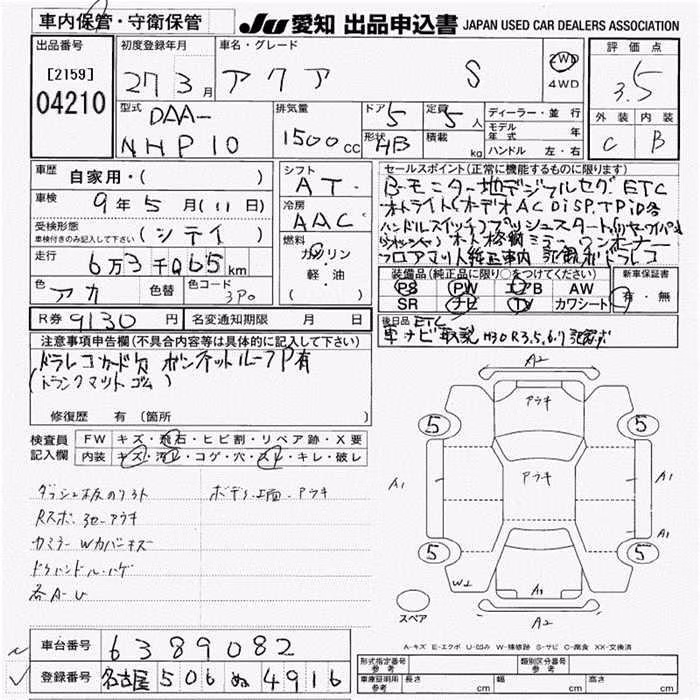 車内保管・守衛保管
JU 愛知 出品申込書 JAPAN USED CAR DEALERS ASSOCIATION
出品番号
[2159]
04210
初度登録年月
27 3月
車名・グレード
アクア S
2WD
4WD
評価点
3.5
外装 内装
C B
型式
DAA-
NHP10
排気量
1500cc
ドア
5
定員
5人
形状
HB
積載
kg
ディーラー・並行
モデル年式 年
ハンドル 左・右
車歴
自家用・( )
車検
9年5月(11日)
受検形態
車検付きのみ記入して下さい
(シティ)
走行
6万3千065km
色
アカ
色替
色コード
3P0
シフト
AT
冷房
AAC
燃料
ガソリン
軽・油
( )
セールスポイント(正常に機能するものに限ります)
Bモニター地デジフルセグETC
オートライトオーデオAC DiSP.TRiP各
ハンドルスイッチプッシュスタート
ワンオーナー
フロアマット純正車内 ドラレコ
装備品(純正品に限り○をつけてください)
PS PW エアB AW
SR ナビ TV カワシート
新車保証書
有・無
R券 9130円
名変通知期限 月 日
後日品 ETC
車 ナビ取説 H30 R3.5.6.7記録ボ
注意事項申告欄(不具合内容等は具体的に記入して下さい)
ドラレコカード欠 ボンネットルーフP有
(トランクマットゴム)
修復歴 有(箇所 )
検査員
記入欄
FW キズ・飛石・ヒビ割・リペア跡・X要
内装 キズ・汚レ・コゲ・穴・スレ・キレ・破レ
ダッシュ板のリスト ボデー上面-アラキ
Rスポ.3セ-アラキ
カミラーWカバーキズ
ドアハンドル.ハゲ
各A-U
A2
アラキ
5 5
A1 アラキ A1
A1
5 5
W2 A1
A2
スペア
A-キズ E-エクボ U-凹み W-補修跡 S-サビ C-腐食 XX-交換済
車台番号
6389082
登録番号
名古屋 506 ぬ 4916
形式指定番号
参考
類別区分番号
参考
車庫証明用
参考
長さ cm 幅 cm 高さ cm